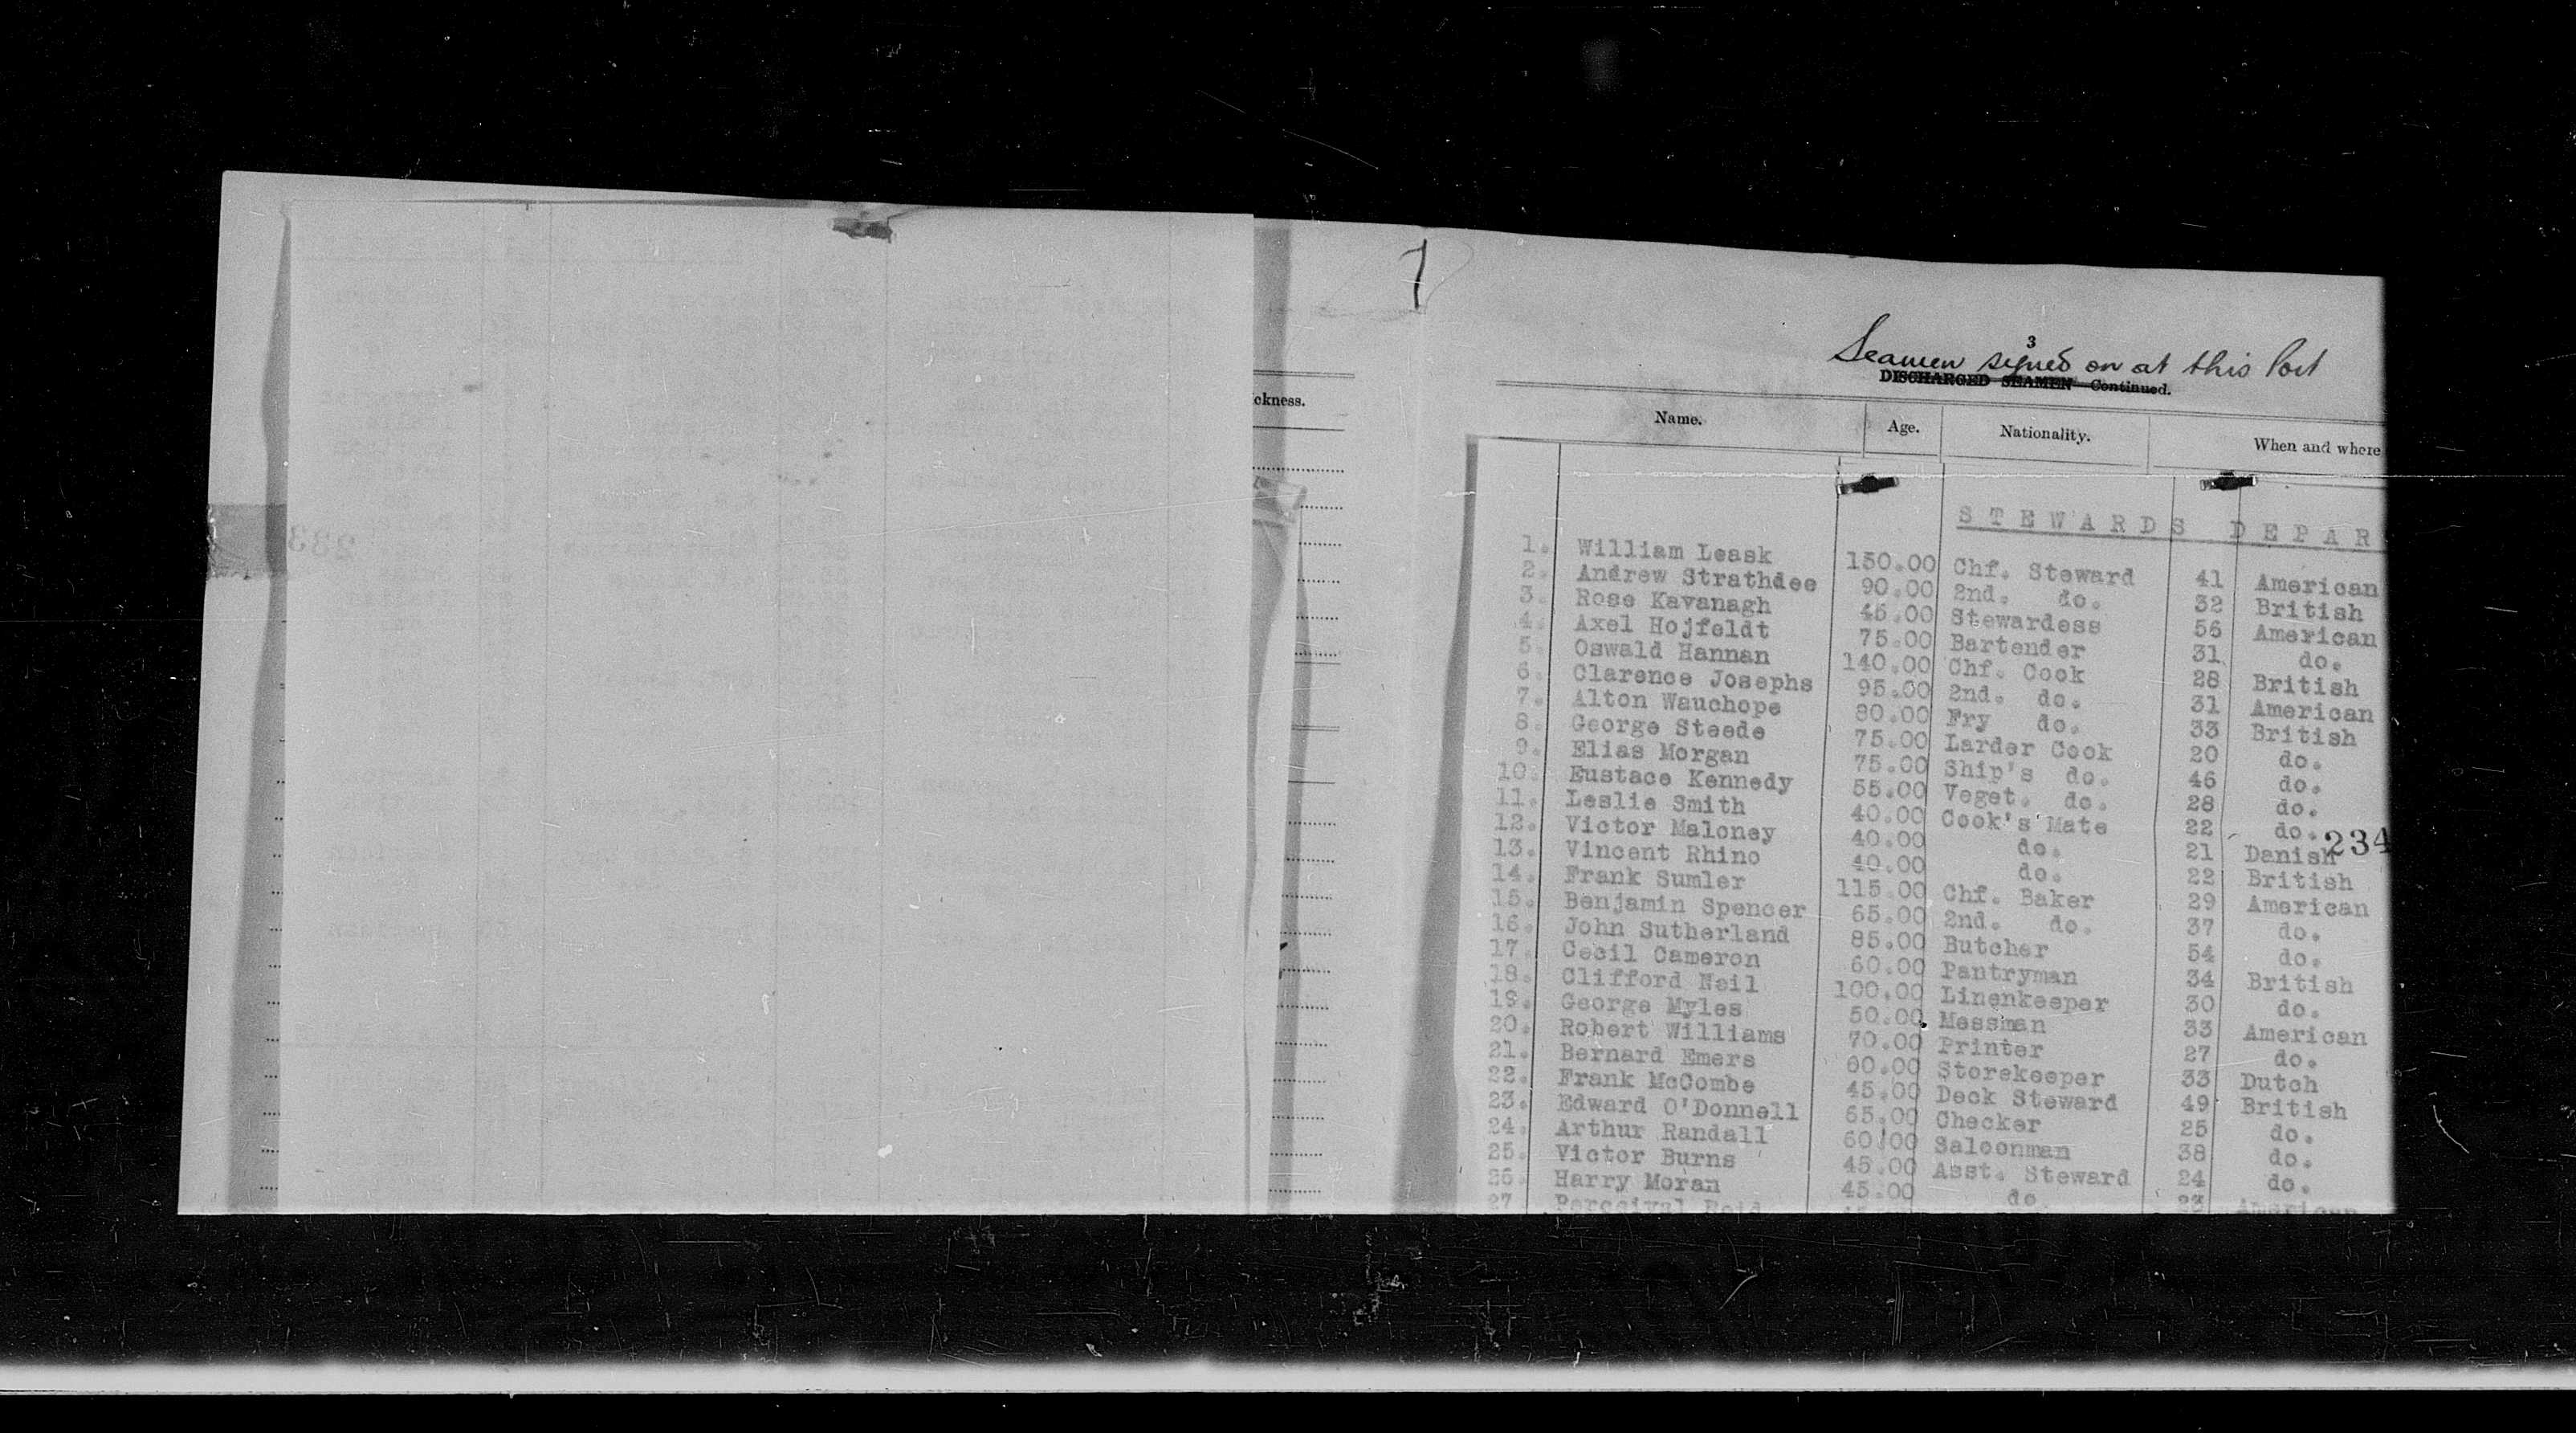 1
3
Seamen signed on at this Port
DISCHARGED SEAMEN Continued.
ckness.
Name. Age. Nationality. When and where
STEWARDS DEPAR
1. William Leask 150.00 Chf. Steward 41 American
2. Andrew Strathdee 90.00 2nd. do. 32 British
3. Rose Kavanagh 45.00 Stewardess 56 American
4. Axel Hojfeldt 75.00 Bartender 31 do.
5. Oswald Hannan 140.00 Chf. Cook 28 British
6. Clarence Josephs 95.00 2nd. do. 31 American
7. Alton Wauchope 80.00 Fry do. 33 British
8. George Steede 75.00 Larder Cook 20 do.
9. Elias Morgan 75.00 Ship's do. 46 do.
10. Eustace Kennedy 55.00 Veget. do. 28 do.
11. Leslie Smith 40.00 Cook's Mate 22 do.
12. Victor Maloney 40.00 do. 21 Danish
234
13. Vincent Rhino 40.00 do. 22 British
14. Frank Sumler 115.00 Chf. Baker 29 American
15. Benjamin Spencer 65.00 2nd. do. 37 do.
16. John Sutherland 85.00 Butcher 54 do.
17. Cecil Cameron 60.00 Pantryman 34 British
18. Clifford Neil 100.00 Linenkeeper 30 do.
19. George Myles 50.00 Messman 33 American
20. Robert Williams 70.00 Printer 27 do.
21. Bernard Emers 60.00 Storekeeper 33 Dutch
22. Frank McCombe 45.00 Deck Steward 49 British
23. Edward O'Donnell 65.00 Checker 25 do.
24. Arthur Randall 60.00 Saloonman 38 do.
25. Victor Burns 45.00 Asst. Steward 24 do.
26. Harry Moran 45.00 do. 23 American
27. Percival Reid